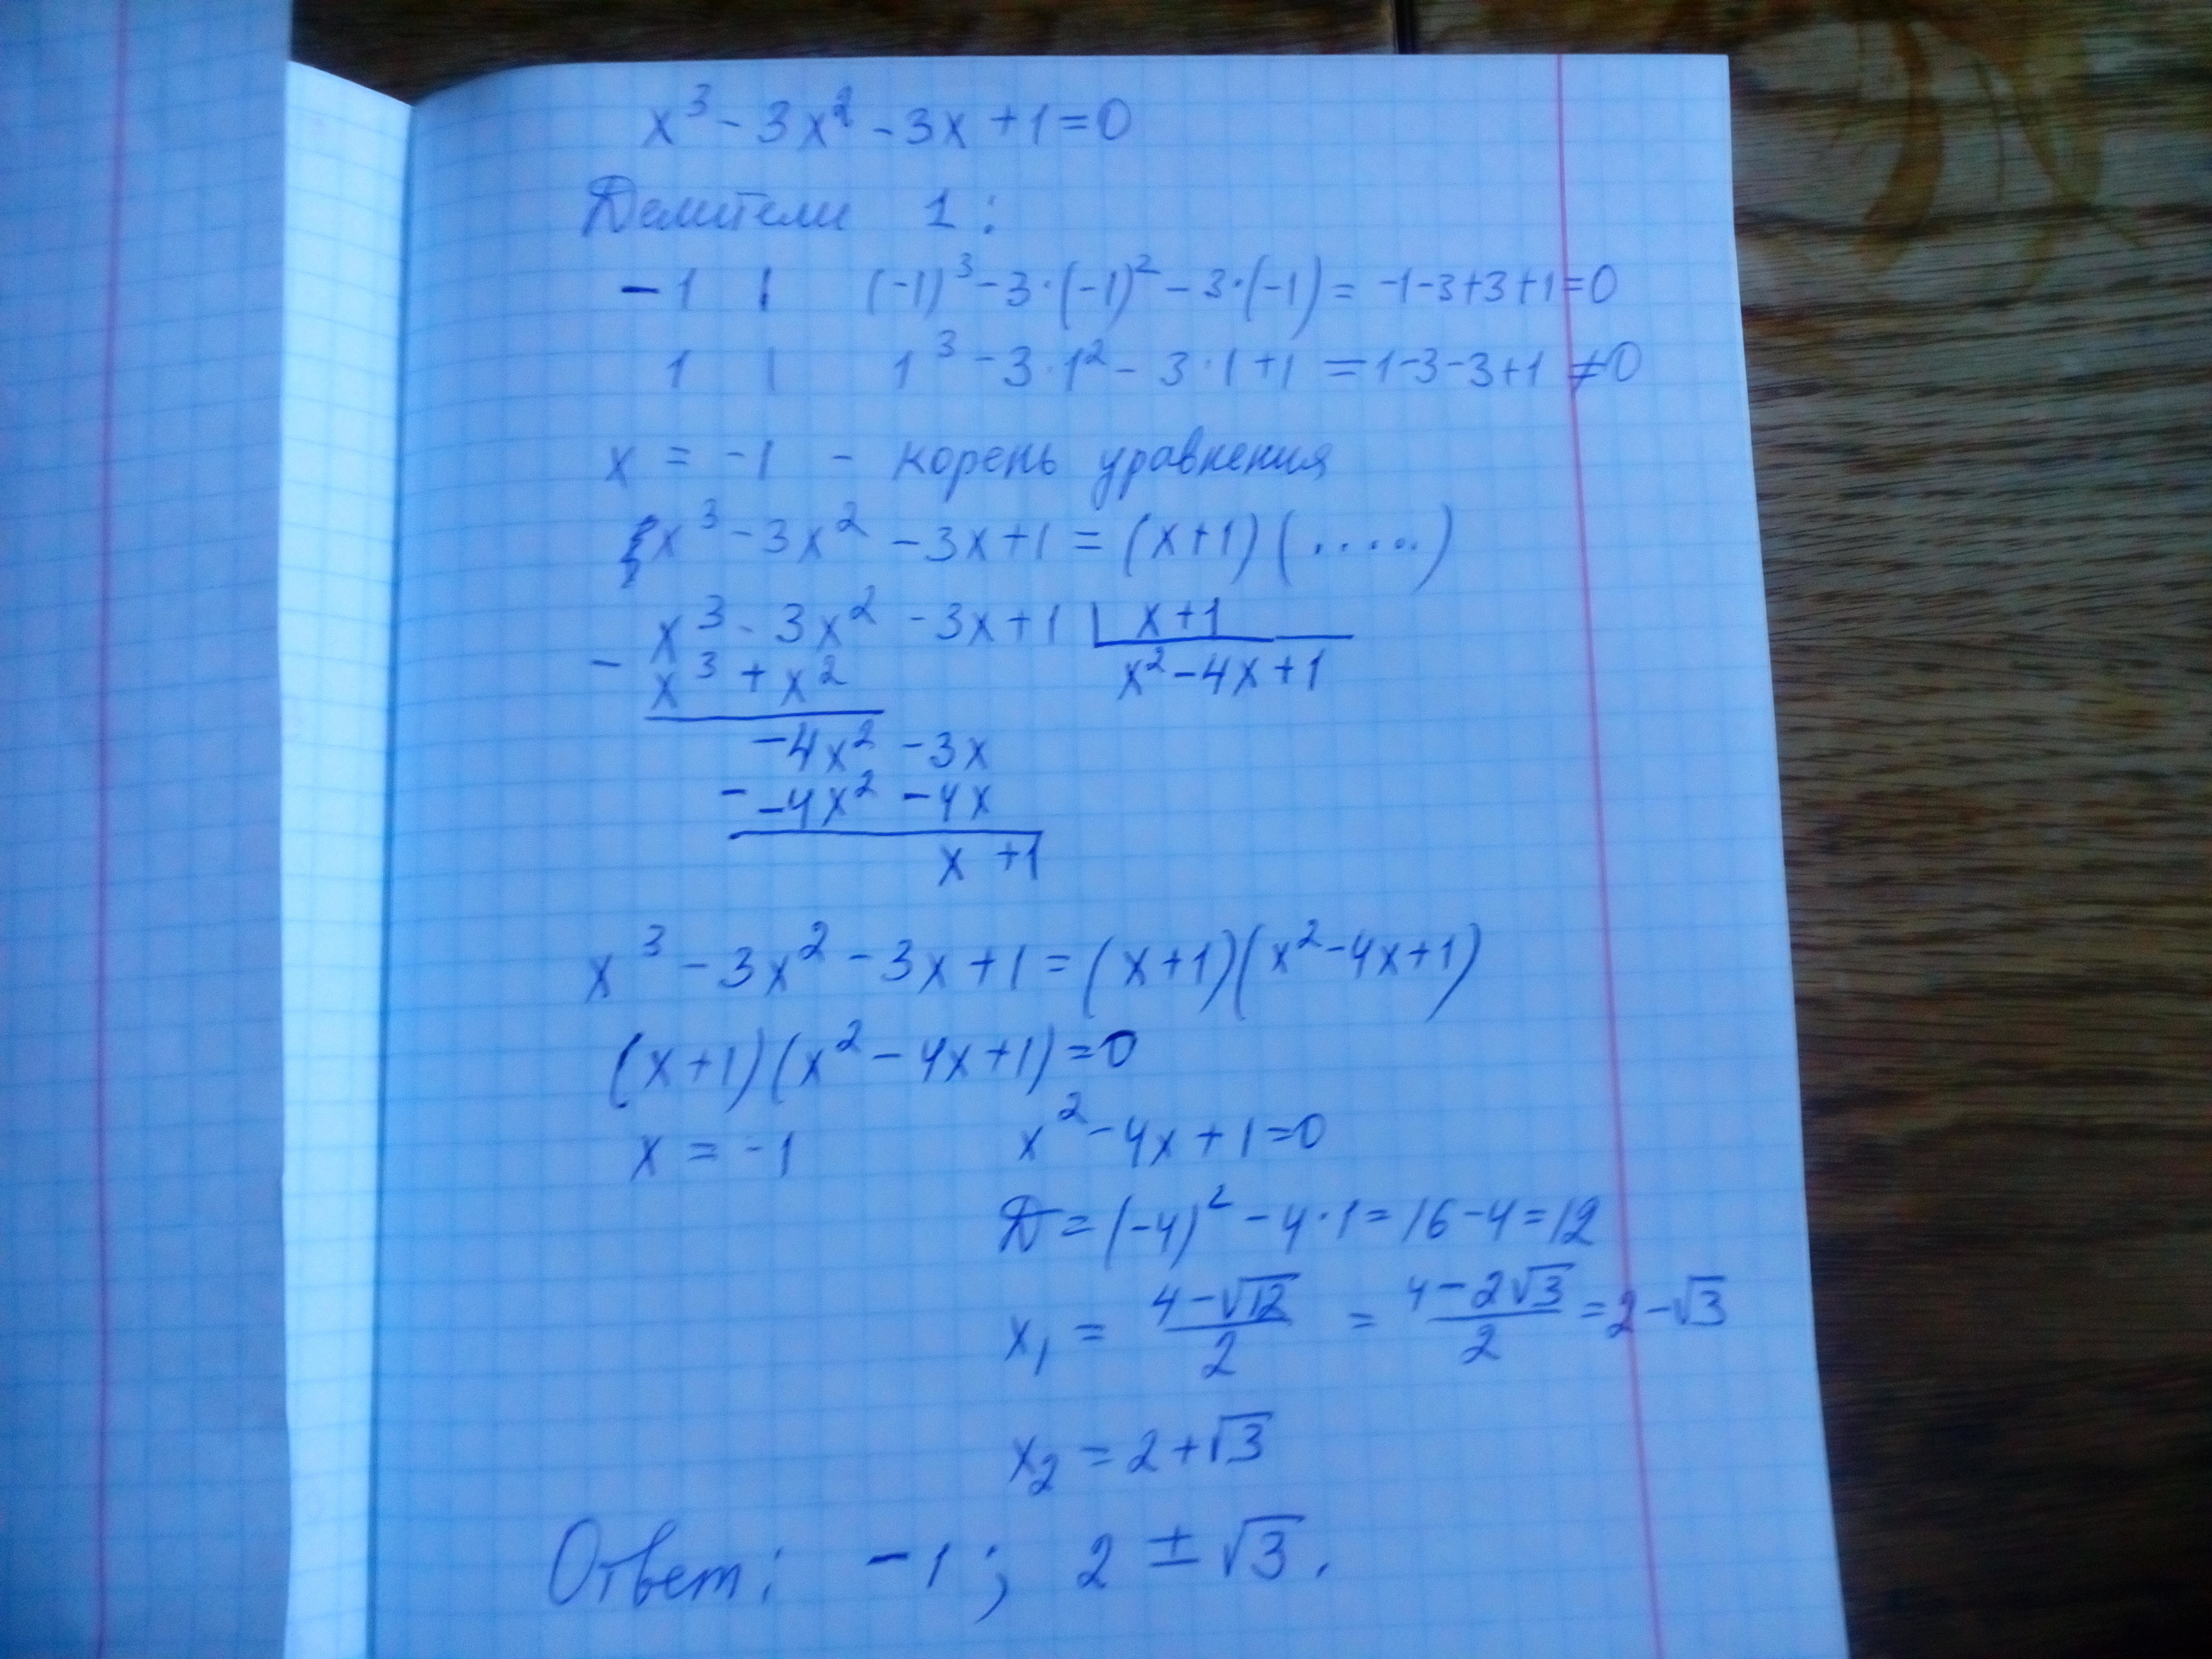 x³ - 3x² - 3x + 1 = 0
Делители 1 :
-1 | (-1)³ - 3·(-1)² - 3·(-1) = -1-3+3+1=0
1 | 1³ - 3·1² - 3·1 + 1 = 1-3-3+1 ≠ 0
x = -1 - корень уравнения
x³ - 3x² - 3x + 1 = (x+1)(.....)
x³ - 3x² - 3x + 1 | x+1
- x³ + x² x² - 4x + 1
-4x² - 3x
- -4x² - 4x
x + 1
x³ - 3x² - 3x + 1 = (x+1)(x² - 4x + 1)
(x+1)(x² - 4x + 1) = 0
x = -1 x² - 4x + 1 = 0
D = (-4)² - 4·1 = 16 - 4 = 12
x₁ = (4-√12)/2 = (4-2√3)/2 = 2-√3
x₂ = 2+√3
Ответ: -1; 2 ± √3.